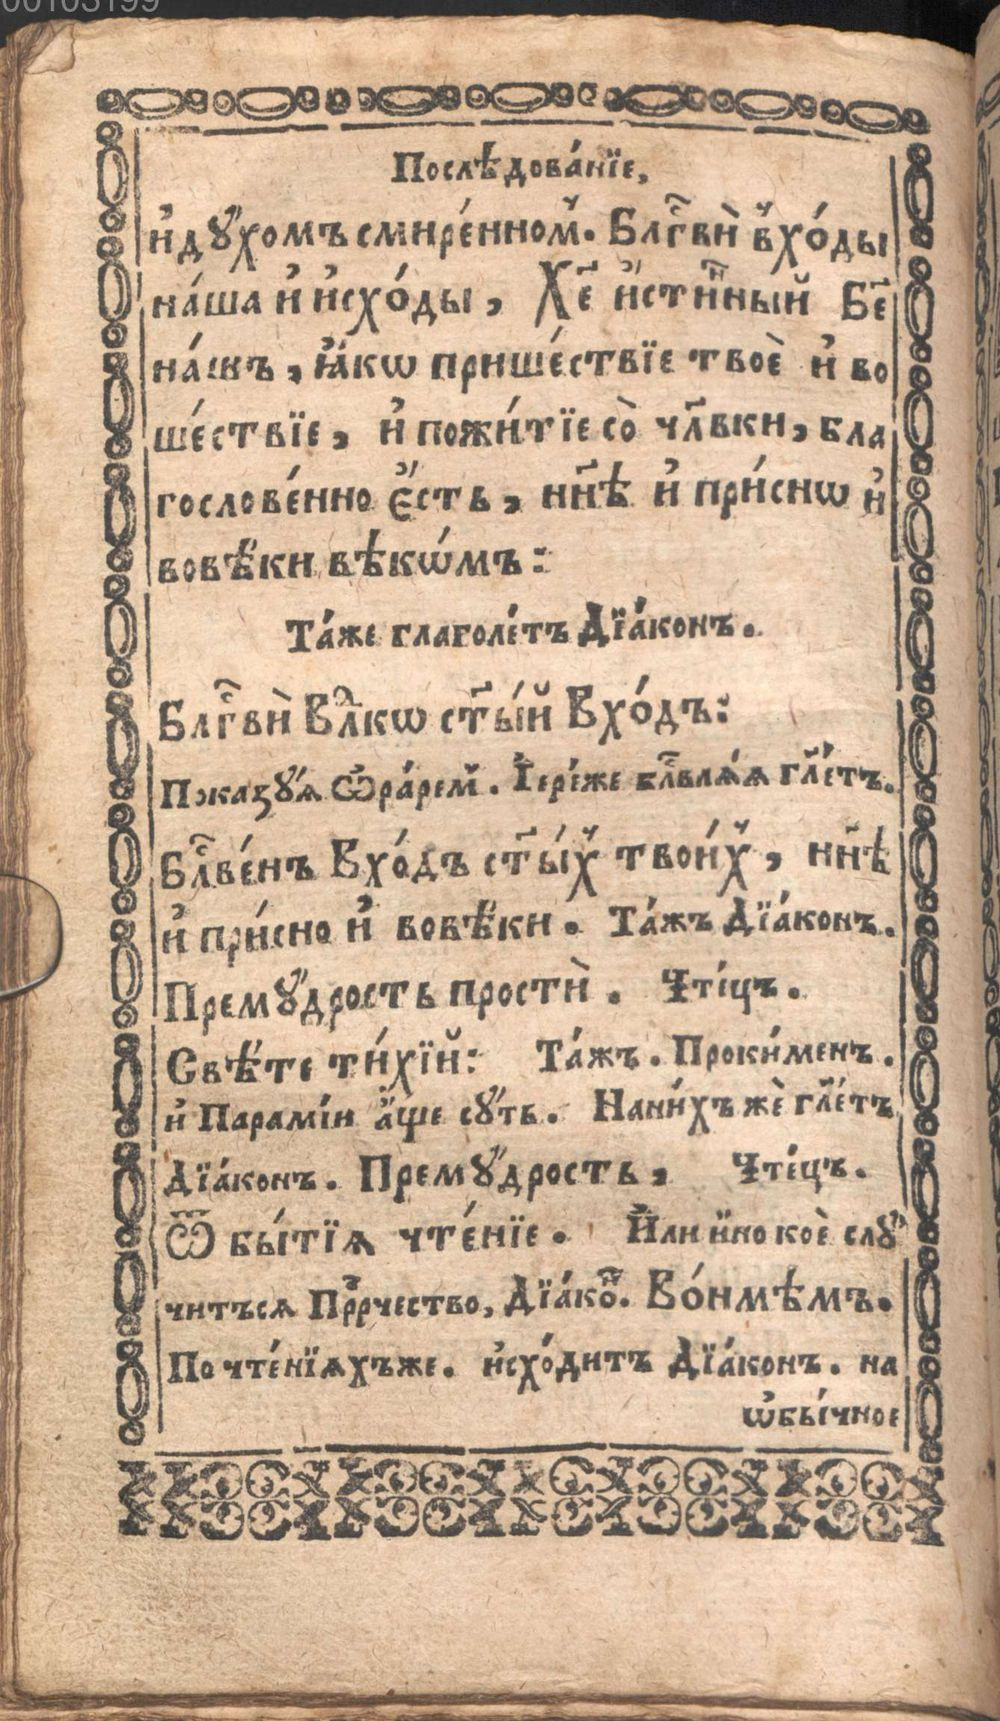 00103199
Послѣдова́нїе,
и҆дꙋ́хомъ смире́нномꙋ. Блгⷭ҇вѝ в̾хо́ды
на́ша и҆ и҆схо́ды, Хе҃ и҆́стинⷩ҇ый Бе҃
на́шъ, ꙗ҆́кѡ прише́ствїе твоѐ и҆ во
ше́ствїе, и҆ пожи́тїе со̀ чл҃вки, бла
гослове́нно є҆́сть, нн҃ѣ и҆ при́снѡ и҆
вовѣ́ки вѣкѡ́мъ:
Та́же глаголе́тъ Дїа́конъ.
Блгⷭ҇вѝ Влⷣкѡ ст҃ы́й Вхо́дъ:
Показꙋ́ѧ Ѡ҆ра́рем̾. І҆ере́же бл҃влѧ́ѧ гл҃е́тъ.
Бл҃ве́нъ Вхо́дъ ст҃ы́х̾ твои́х̾, нн҃ѣ
и҆ при́сно и҆ вовѣ́ки. Та́жъ Дїа́конъ.
Премꙋ́дрость простѝ. Чте́цъ.
Свѣ́те ти́хїй: Та́жъ. Проки́менъ.
и҆ Парамі́и а҆́ще сꙋ́ть. Нани́хъ жѐ гл҃е́тъ
Дїа́конъ. Премꙋ́дрость, Чте́цъ.
Ѿ бы́тїѧ чте́нїе. И҆́ли и҆́но коѐ слꙋ́
читъсѧ Прⷪ҇рчество, Дїа́коⷩ҇. Во́нмѣмъ.
По чте́нїѧхъже. и҆схо́дитъ Дїа́конъ. на
ѡ҆бы́чное